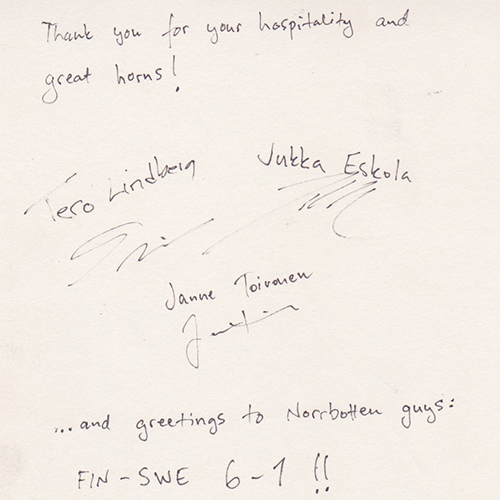 Thank you for your hospitality and
great horns!
Tero Lindberg
Jukka Eskola
Janne Toivonen
...and greetings to Norrbotten guys:
FIN - SWE 6-1 !!